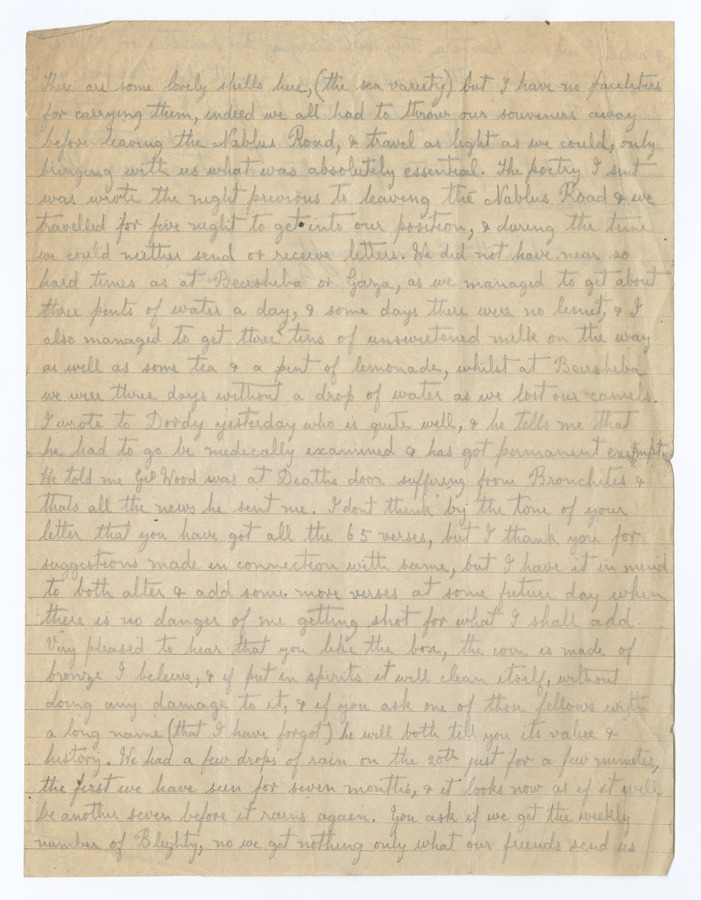 There are some lovely shells here, (the sea variety) but I have no faceliteis
for carrying them, indeed we all had to throw our souveners away
before leaving the Nablus Road, & travel as light as we could, only
bringing with us what was absolutely essential. The poetry I sent
was wrote the night previous to leaving the Nablus Road & we
travelled for five night to get into our position, & during the time
we could neither send or receive letters. We did not have near so
hard times as at Beersheba or Gaza, as we managed to get about
three pints of water a day, & some days there were no limit, & I
also managed to get three tins of unsweetened milk on the way
as well as some tea & a pint of lemonade, whilst at Beersheba
we were three days without a drop of water as we lost our camels.
I wrote to Dordy yesterday who is quite well, & he tells me that
he had to go be medically examined & has got permanent exempt.
He told me Gel Wood was at Deaths door suffering from Bronchites &
thats all the news he sent me. I dont think by the tone of your
letter that you have got all the 65 verses, but I thank you for
suggestions made in connection with same, but I have it in mind
to both alter & add some more verses at some future day when
there is no danger of me getting shot for what I shall add.
Very pleased to hear that you like the box, the coin is made of
bronze I beleive, & if put in spirits it will clean itself, without
doing any damage to it, & if you ask one of those fellows with
a long name (that I have forgot) he will both tell you its value &
history. We had a few drops of rain on the 20th just for a few minutes,
the first we have seen for seven months, & it looks now as if it will
be another seven before it rains again. You ask if we get the weekly
number of Blighty, no we get nothing only what our friends send us